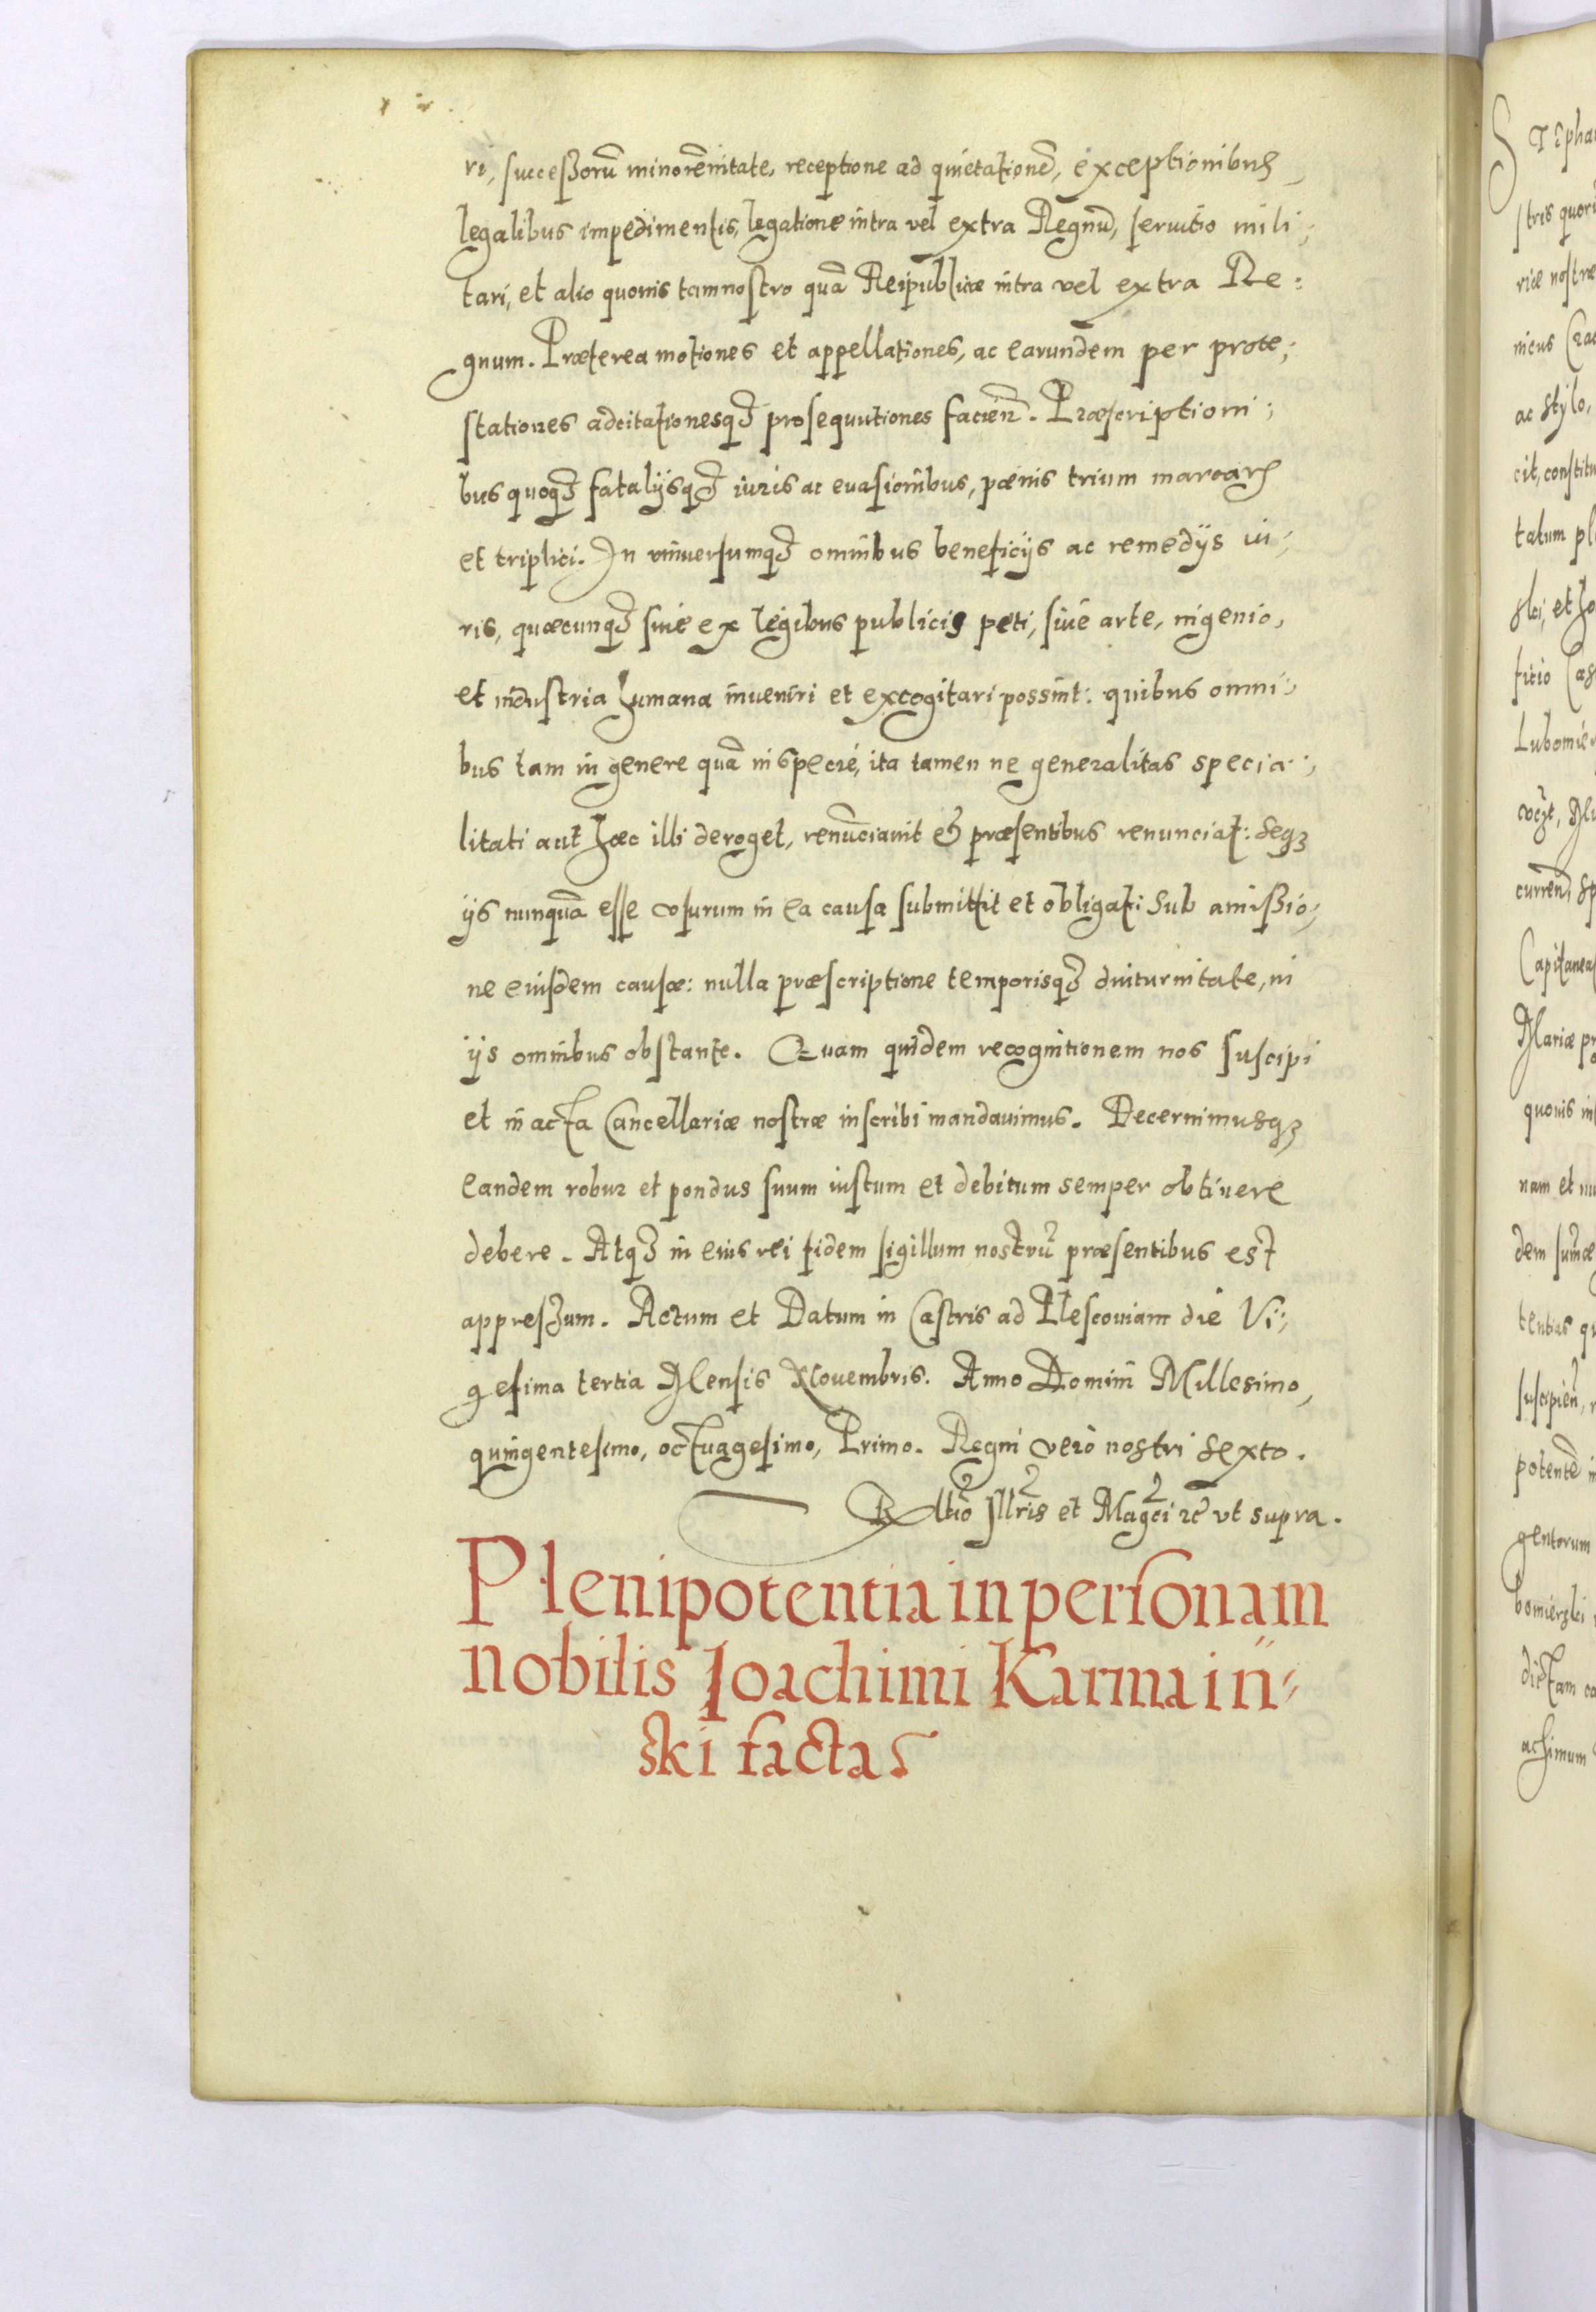 ri, successorū minorēnitate, receptione ad quietationē, exceptionibus
legalibus impedimentis, legatione intra vel extra Regnū, seruitio mili-
tari, et alio quouis tam nostro quā Reipublicæ intra vel extra Re-
gnum. Præterea motiones et appellationes, ac earundem per prote-
stationes adcitationesq₃ prosequutiones facien̄. Præscriptioni-
bus quoq₃ fatalijsq₃ iuris ac euasionibus, pænis trium marcarꝝ
et triplici. In vniuersumq₃ omnibus beneficijs ac remedijs iu-
ris, quæcunq₃ siue ex legibus publicis peti, siue arte, ingenio,
et industria humana inueniri et excogitari possint: quibus omni-
bus tam in genere quā in specie, ita tamen ne generalitas specia-
litati aut hæc illi deroget, renūciauit et præsentibus renunciat: seq₃
ijs nunquā esse vsurum in ea causa submittit et obligat: sub amissio-
ne eiusdem causæ: nulla præscriptione temporisq₃ diuturnitate, in
ijs omnibus obstante. Quam quidem recognitionem nos suscipi
et in acta Cancellariæ nostræ inscribi mandauimus. Decernimusq₃
eandem robur et pondus suum iustum et debitum semper obtinere
debere. Atq₃ in eius rei fidem sigillum nostrū præsentibus est
appressum. Actum et Datum in Castris ad Plescouiam die Vi-
gesima tertia Mensis Nouembris. Anno Domini Millesimo,
quingentesimo, octuagesimo, Primo. Regni vero nostri sexto.
Rltio Illris et Magci ꝛc̄ vt supra.
Plenipotentia in personam
nobilis Ioachimi Karmain-
ski facta
Stepha
stris quor
riæ nostræ
nicus Cra
ac stylo,
cit, constitu
tatum pl
slci, et Jo
fitio Cas
Lubomie
curren̄, sp
Capitanea
Mariæ pr
quouis in
nam et nu
dem sum̄æ
tentias qu
suscipien̄,
potentē in
gentorum
bomierslci
dictam ca
achimum